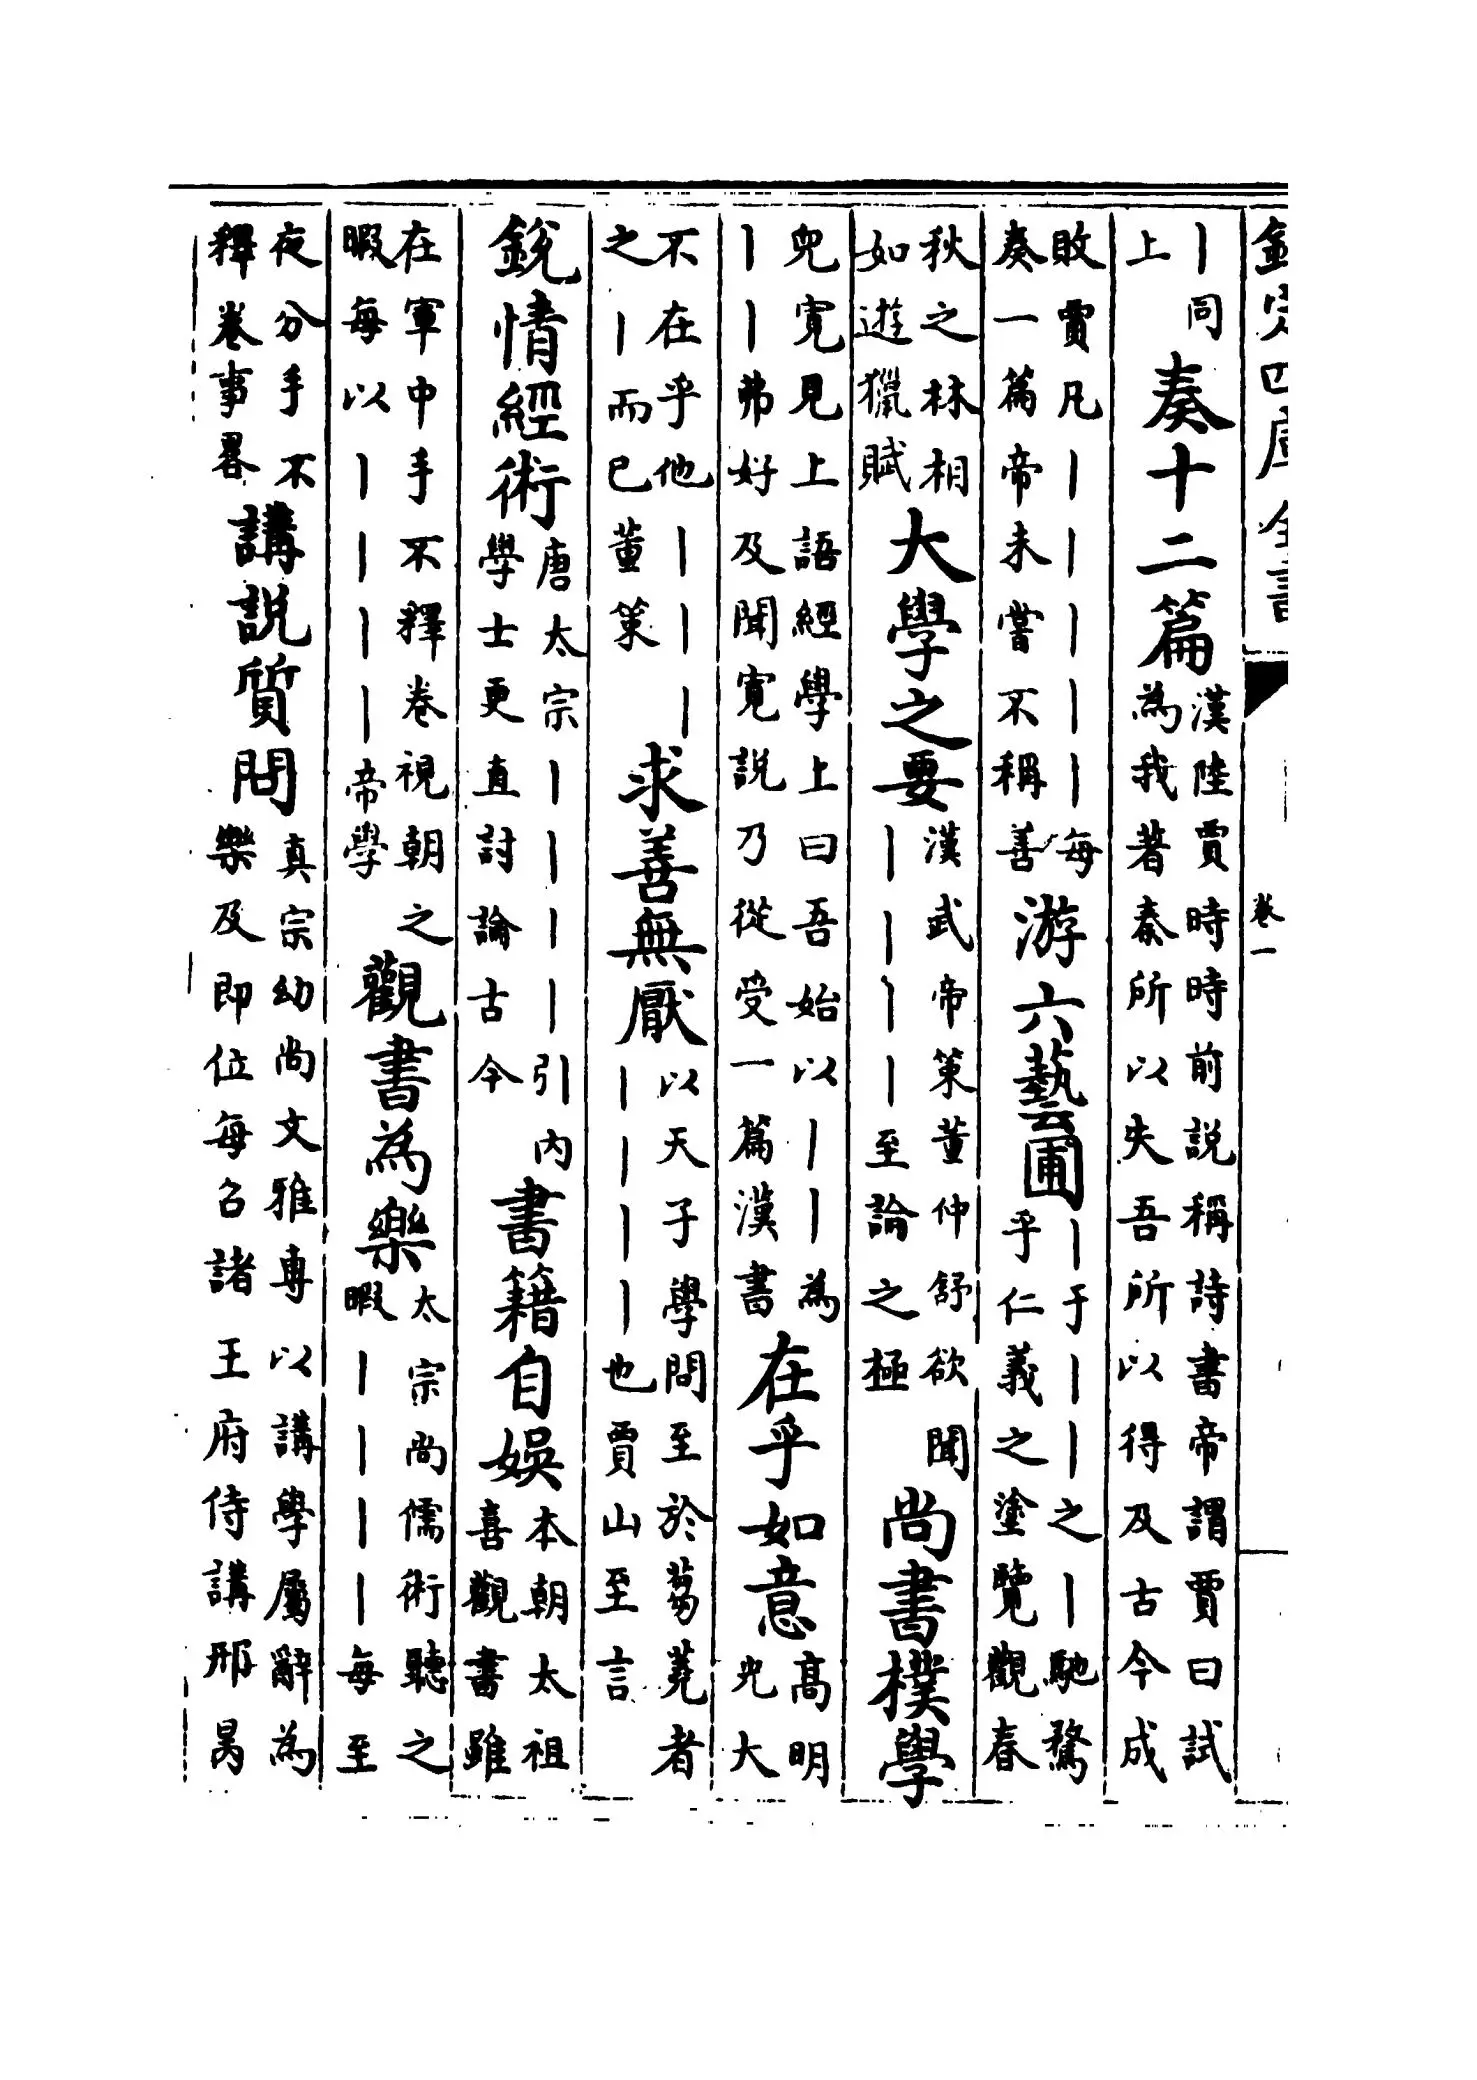 欽定四庫全書 卷一
丨同上奏十二篇漢陸賈時時前説稱詩書帝謂賈曰試為我著秦所以失吾所以得及古今成
敗賈凡丨丨丨丨丨每奏一篇帝未嘗不稱善游六藝圃丨于丨丨之丨馳騖乎仁義之塗覽觀春
秋之林相如遊獵賦大學之要漢武帝策董仲舒欲聞丨丨丨丨至論之極尚書樸學
兒寛見上語經學上曰吾始以丨丨為丨丨弗好及聞寛説乃從受一篇漢書在乎如意高明光大
不在乎他丨丨丨之丨而已董策求善無厭以天子學問至於芻蕘者丨丨丨丨也賈山至言
鋭情經術唐太宗丨丨丨丨引内學士更直討論古今書籍自娯本朝太祖喜觀書雖
在軍中手不釋卷視朝之暇每以丨丨丨丨帝學觀書為樂太宗尚儒術聽之暇丨丨丨丨每至
夜分手不釋卷事畧講説質問真宗幼尚文雅專以講學屬辭為樂及即位每召諸王府侍講邢昺